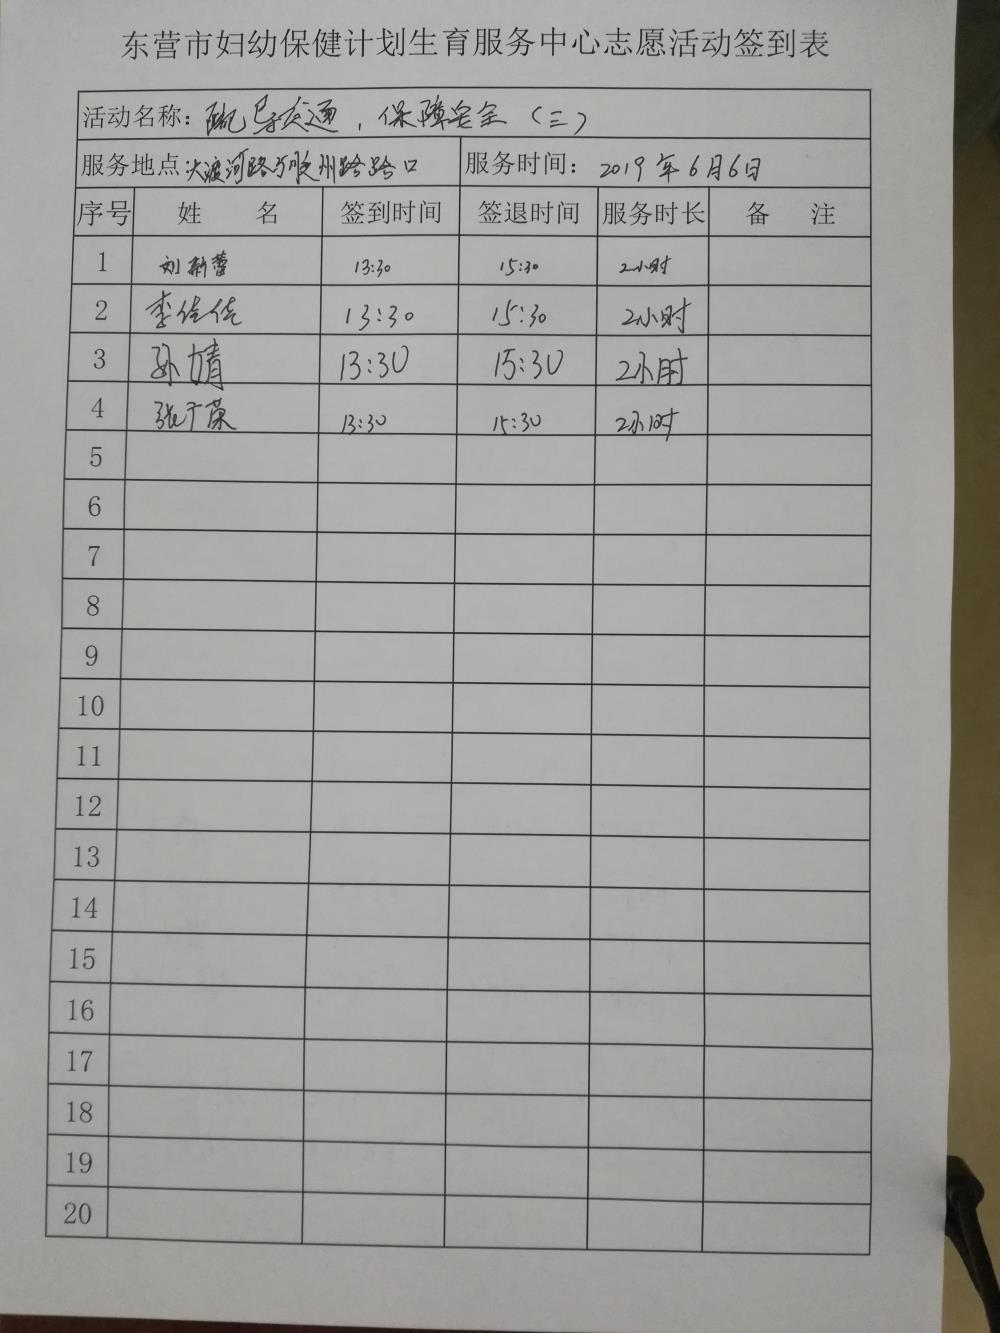 东营市妇幼保健计划生育服务中心志愿活动签到表
活动名称: 疏导交通，保障安全（三）
服务地点:大渡河路与胶州路路口 服务时间: 2019年6月6日
序号 姓 名 签到时间 签退时间 服务时长 备 注
1 刘新蕾 13:30 15:30 2小时
2 李佳佳 13:30 15:30 2小时
3 孙婧 13:30 15:30 2小时
4 张广荣 13:30 15:30 2小时
5
6
7
8
9
10
11
12
13
14
15
16
17
18
19
20